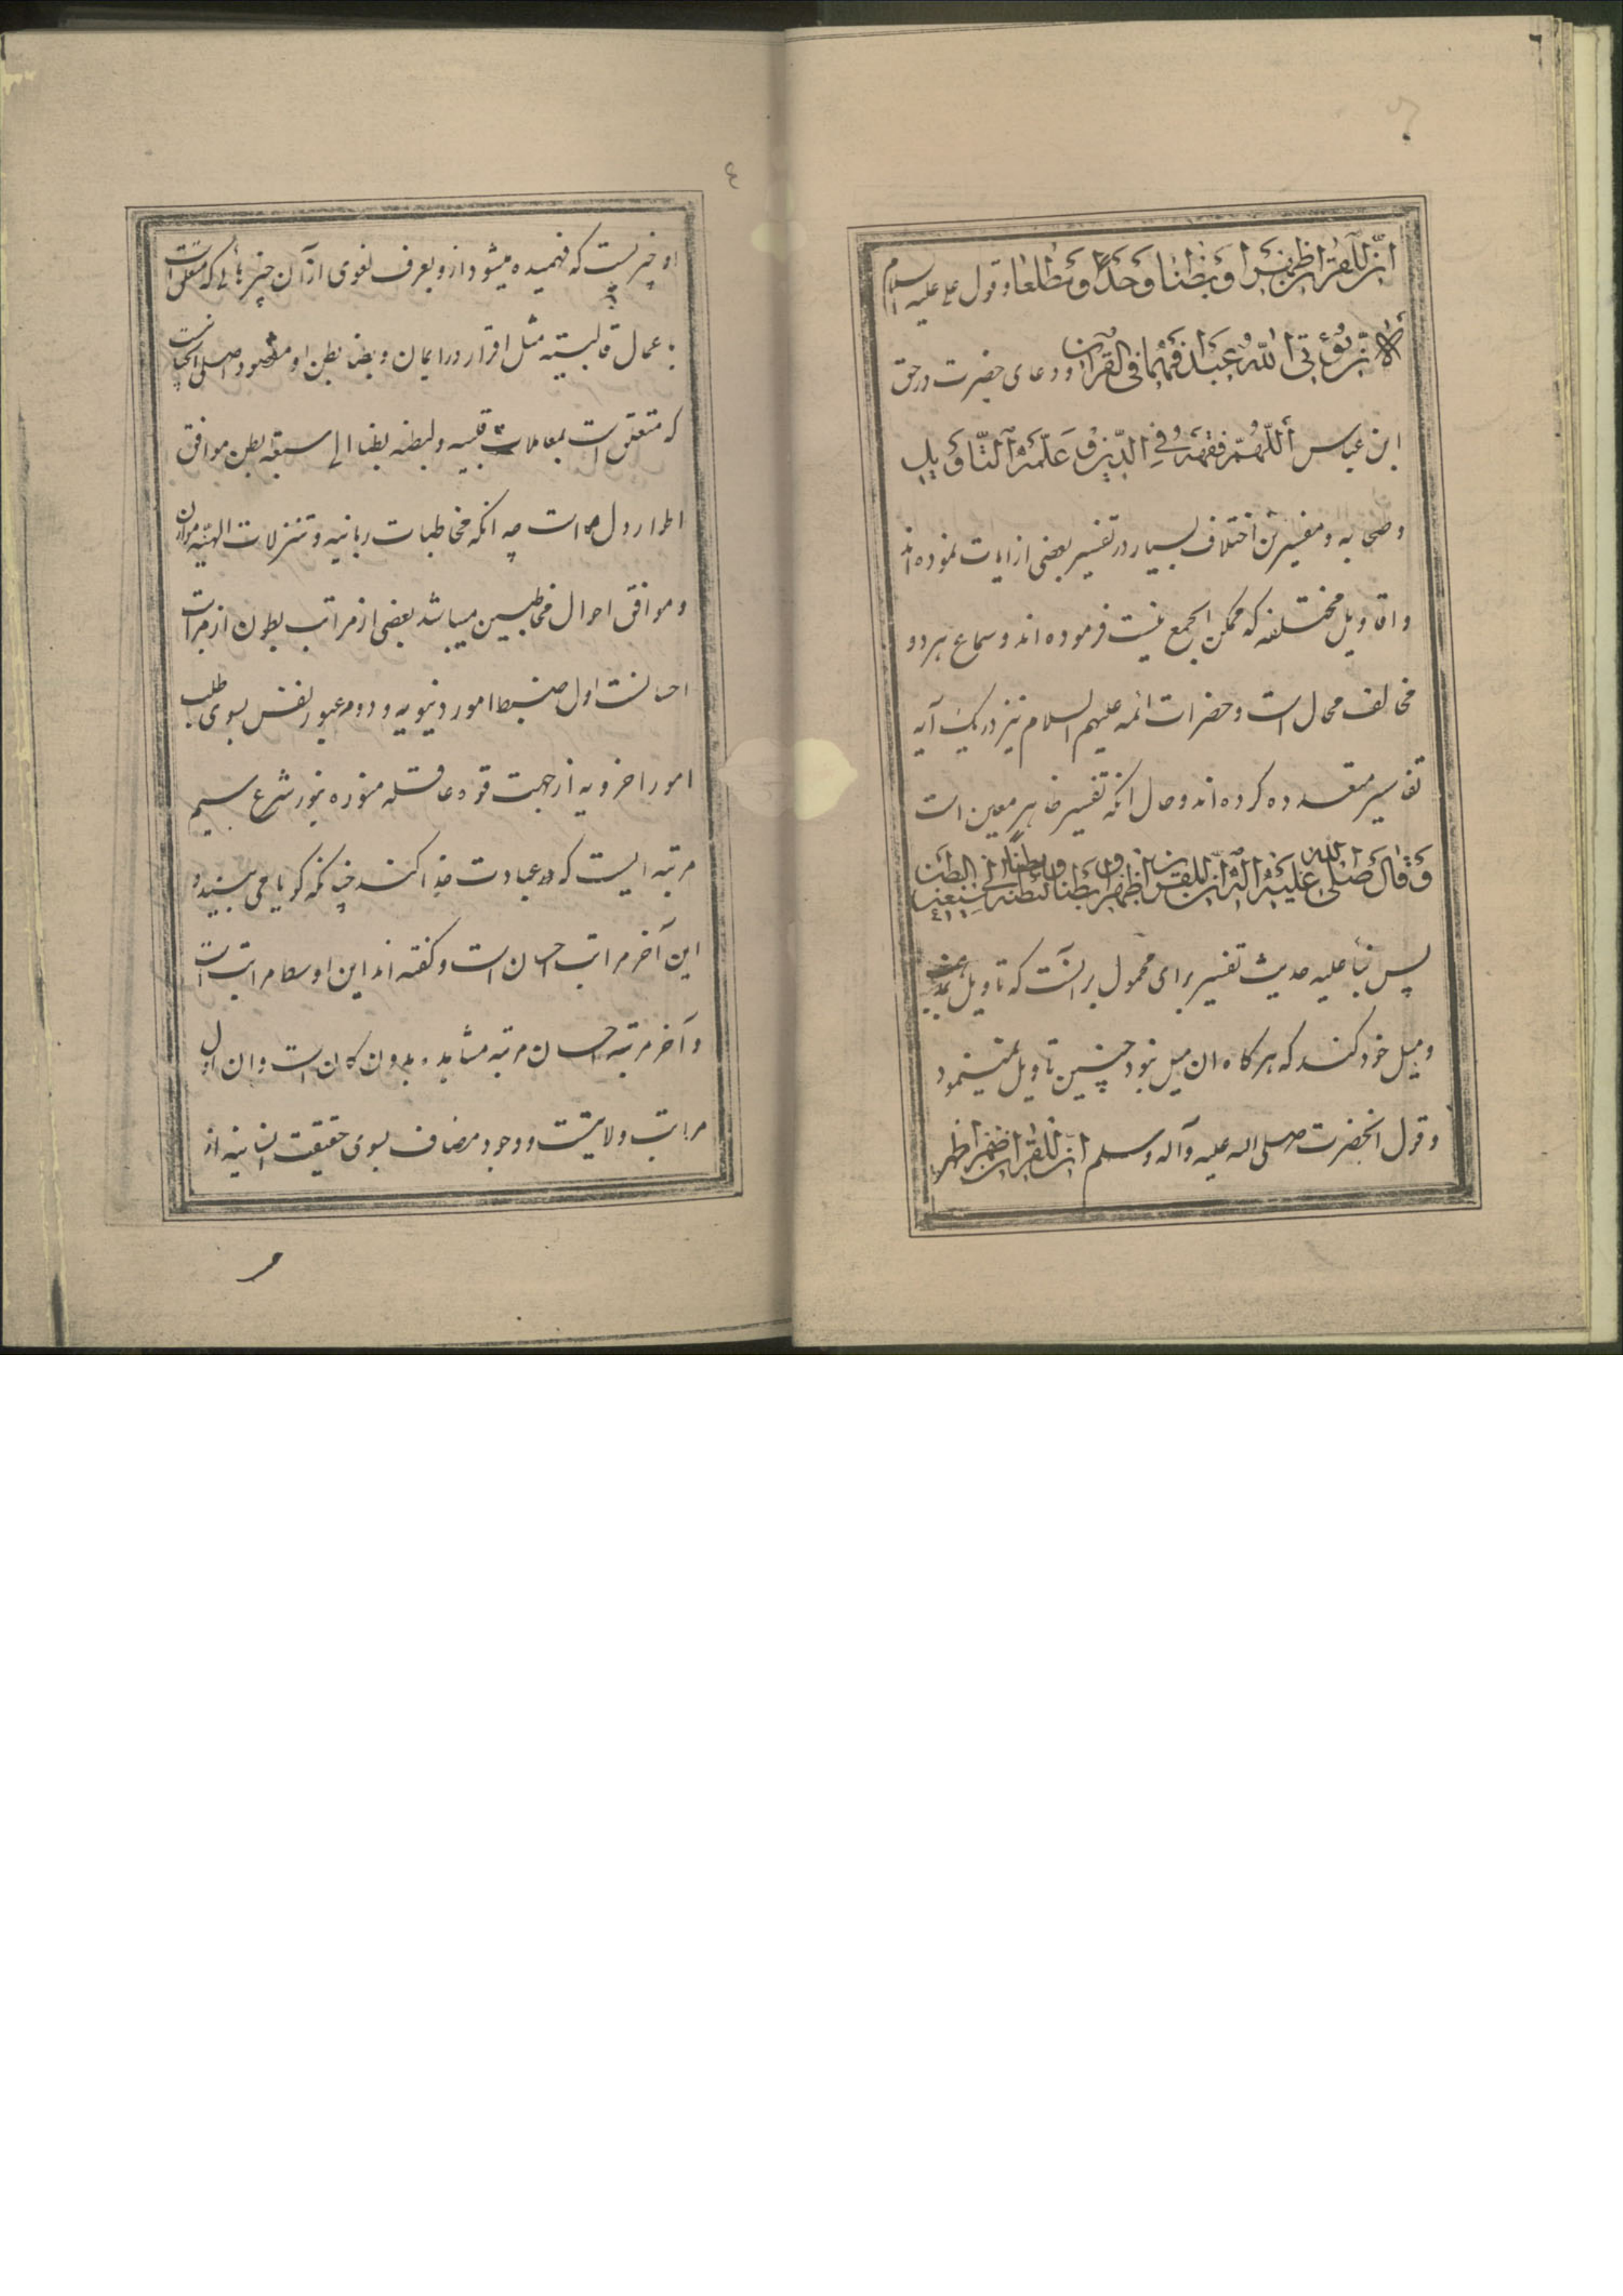 ان للقران ظهرا و بطنا و حدا و مطلعا و قول علی علیه السلام
الا ان یؤتی الله عبدا فهما فی القرآن و دعای حضرت در حق
ابن عباس اللهم فقهه فی الدین و علمه التاویل
و صحابه و مفسرین اختلاف بسیار در تفسیر بعضی از ایات نموده اند
و اقاویل مختلفه که ممکن الجمع نیست فرموده اند و سماع هر دو
مخالف محال است و حضرات ائمه علیهم السلام نیز در یک آیه
تفاسیر متعدده کرده اند و حال انکه تفسیر ظاهر معین است
و قال صلی الله علیه و اله ان للقران ظهرا و بطنا و لبطنه بطنا الی سبعة ابطن
پس بنا علیه حدیث تفسیر برای محمول بر آنست که تاویل
و میل خود کند که هرگاه ان میل نبود چنین تاویل نمینمود
و قول انحضرت صلی اله علیه و آله و سلم ان للقران ظهرا ظهر
٤
او چیزیست که فهمیده میشود از و بعرف لغوی از آن چیزهائی که متعلق است
باعمال قالبیته مثل اقرار در ایمان و بطن او مقصود اصلی انجاست
که متعلق است بمعاملات قلبیه و لبطنه بطنا الی سبعة ابطن موافق
اطوار دل است چه انکه مخاطبات ربانیه و تنزلات الهیه موازن
و موافق احوال مخاطبین میباشد بعضی از مراتب بطون از مراتب
احسانست اول ضبط امور دنیویه و دوم عبور نفس بسوی طلب
امور اخرویه از جهت قوه عاقله منوره بنور شرع سیم
مرتبه ایست که در عبادت خدا کند چنانکه گویا می بیند و
این آخر مراتب احسان است و گفته اند این اوسط مراتب است
و آخر مرتبه احسان مرتبه مشاهده بدون کان است و ان اول
مراتب ولایتست و وجود مضاف بسوی حقیقت انسانیه از